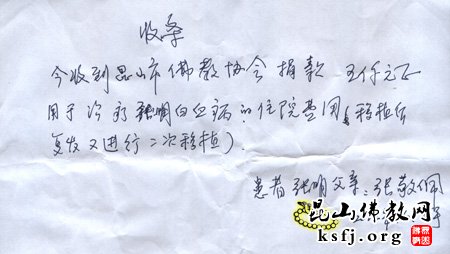 收条
今收到昆山市佛教协会捐款 五仟元正
用于治疗张明白血病的住院费用(移植后
复发又进行二次移植)。
患者张明父亲:张敬佩
昆山佛教网
ksfj.org